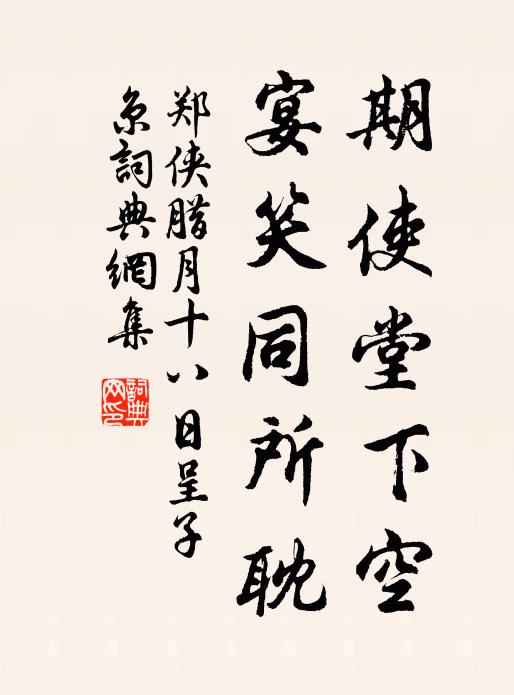 期使堂下空
宴笑同所耽
郑侠腊月十八日呈子
京詞典網集
詞典
网印